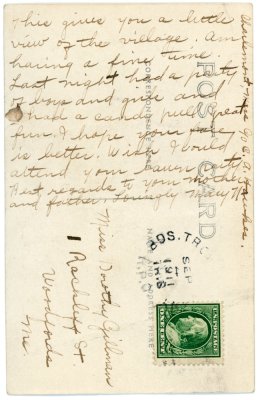 This gives you a little
view of the village. Am
having a fine time.
Last night had a party
of boys and girls and
had a candy pull great
fun. I hope your
is better. Wish I could
attend your lawn
Best regards to your mother
and father. Lovingly Mary
POST CARD
NAME AND ADDRESS HERE
Miss Dorothy
1 Rackleff St.
Woodfords
Me.
BOS. TR
SEP
1911